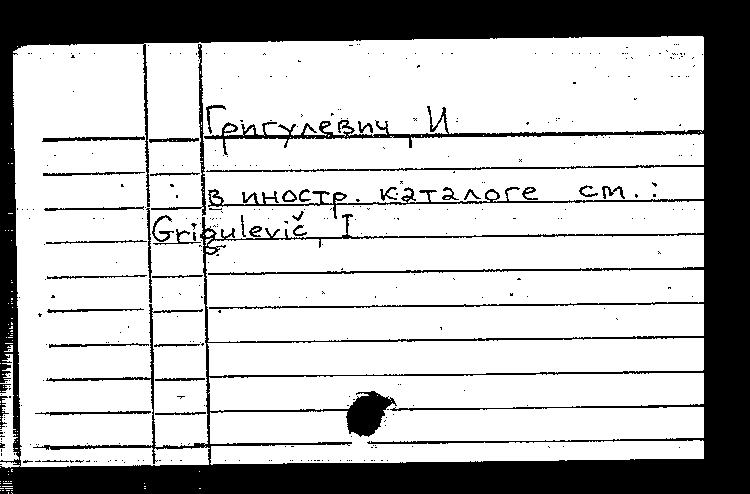 Григулевич, И
в иностр. каталоге см.:
Grigulevič, I